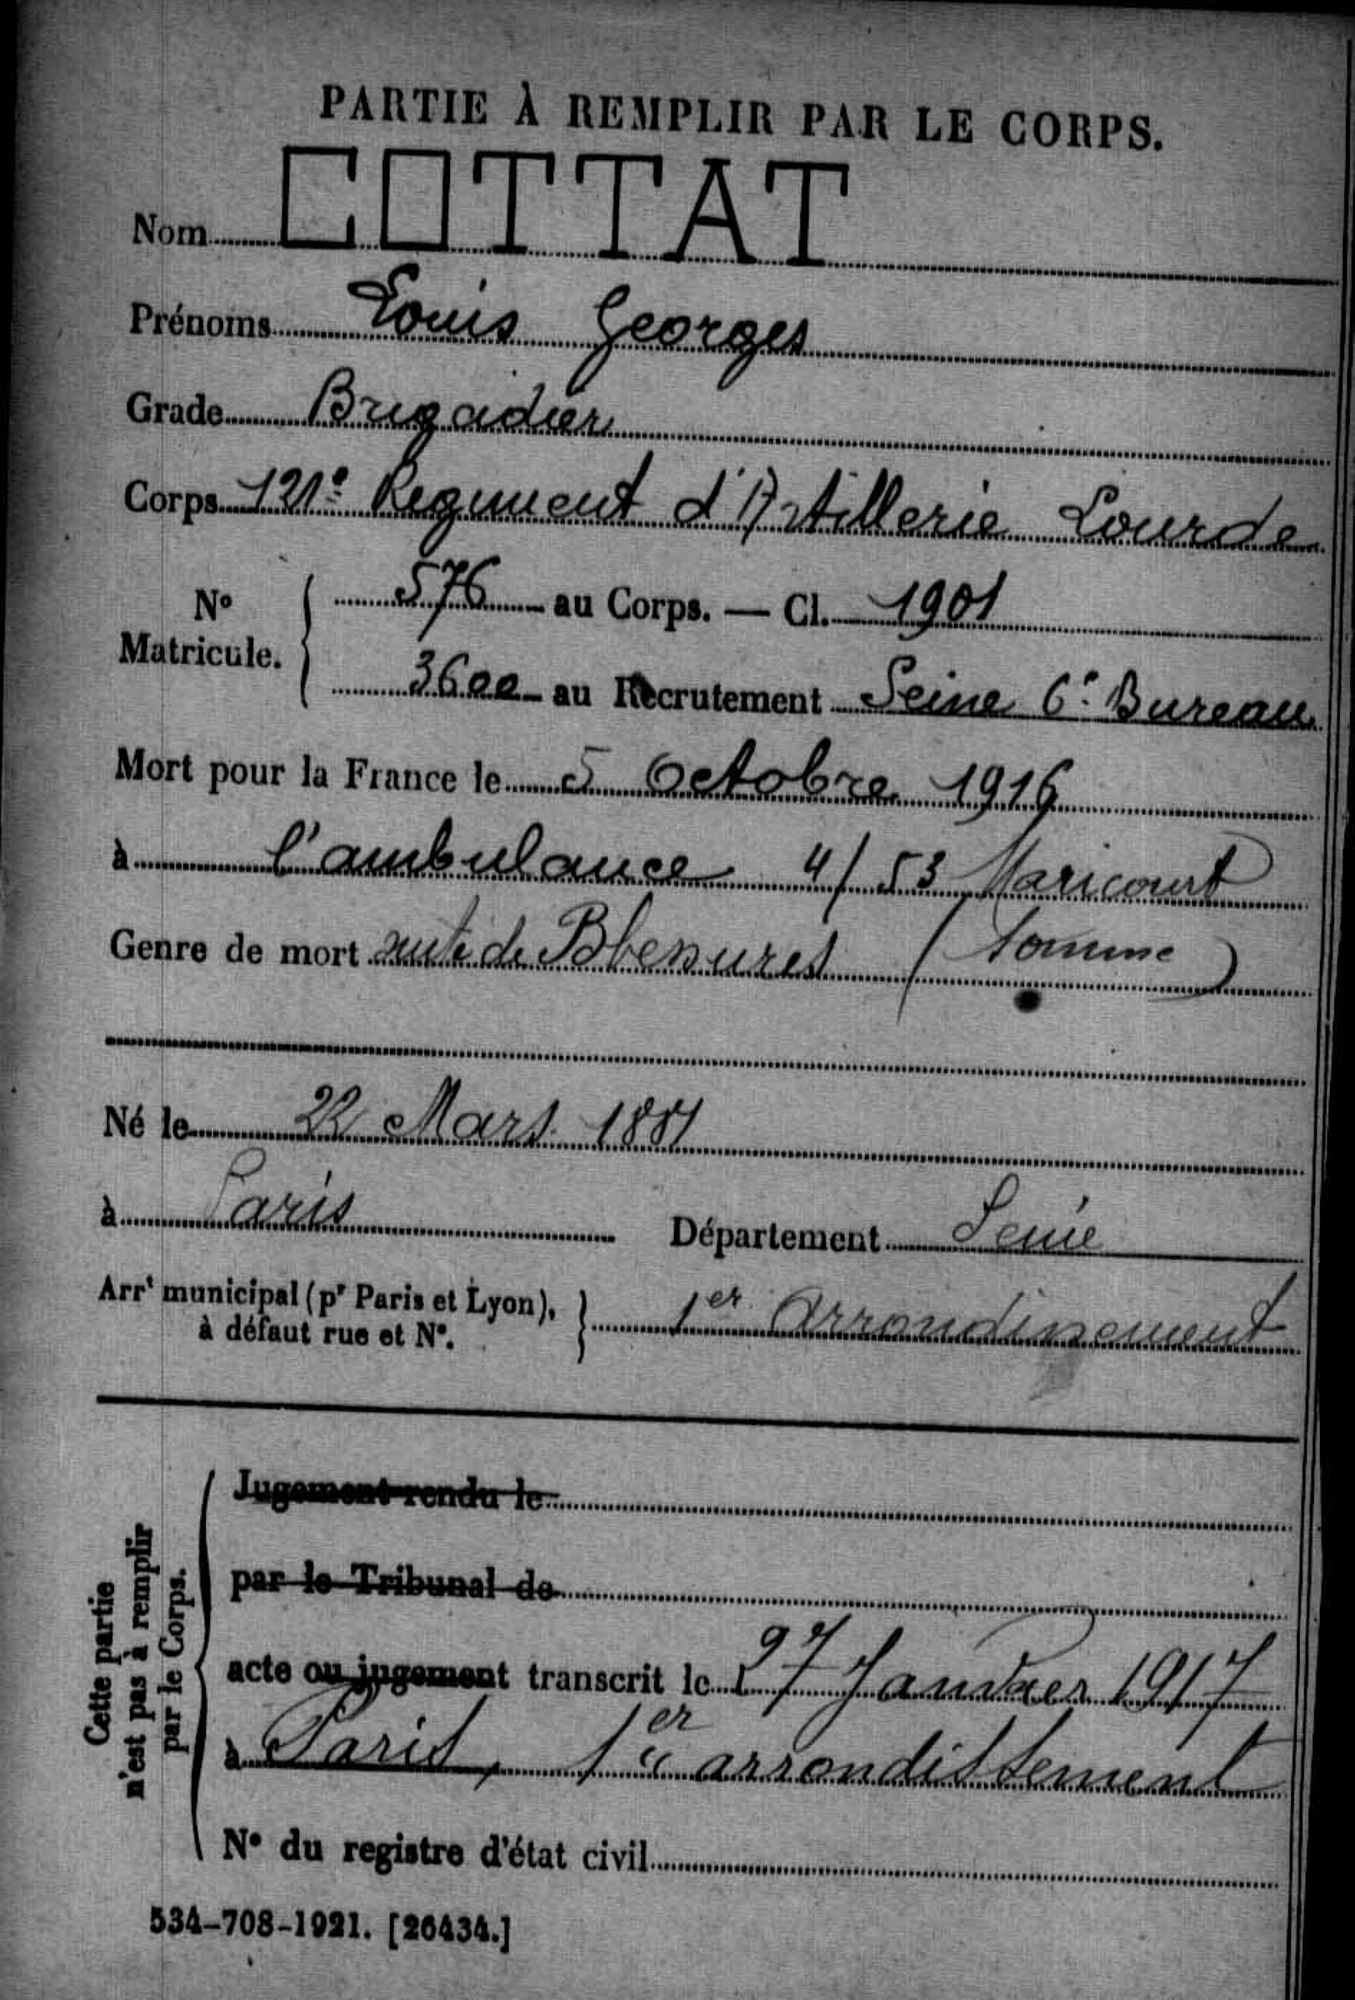 PARTIE À REMPLIR PAR LE CORPS.
Nom COTTAT
Prénoms Louis Georges
Grade Brigadier
Corps 121e Régiment d'Artillerie Lourde
No Matricule. 576 au Corps. — Cl. 1901
3600 au Recrutement Seine 6e Bureau
Mort pour la France le 5 Octobre 1916
à l'ambulance 4/53 Maricourt
Genre de mort suite de Blessures (Somme)
Né le 22 Mars 1881
à Paris Département Seine
Arrt municipal (pr Paris et Lyon), à défaut rue et No. 1er Arrondissement
Cette partie n'est pas à remplir par le Corps.
Jugement rendu le
par le Tribunal de
acte ou jugement transcrit le 27 Janvier 1917
à Paris, 1er arrondissement
No du registre d'état civil
534-708-1921. [26434.]